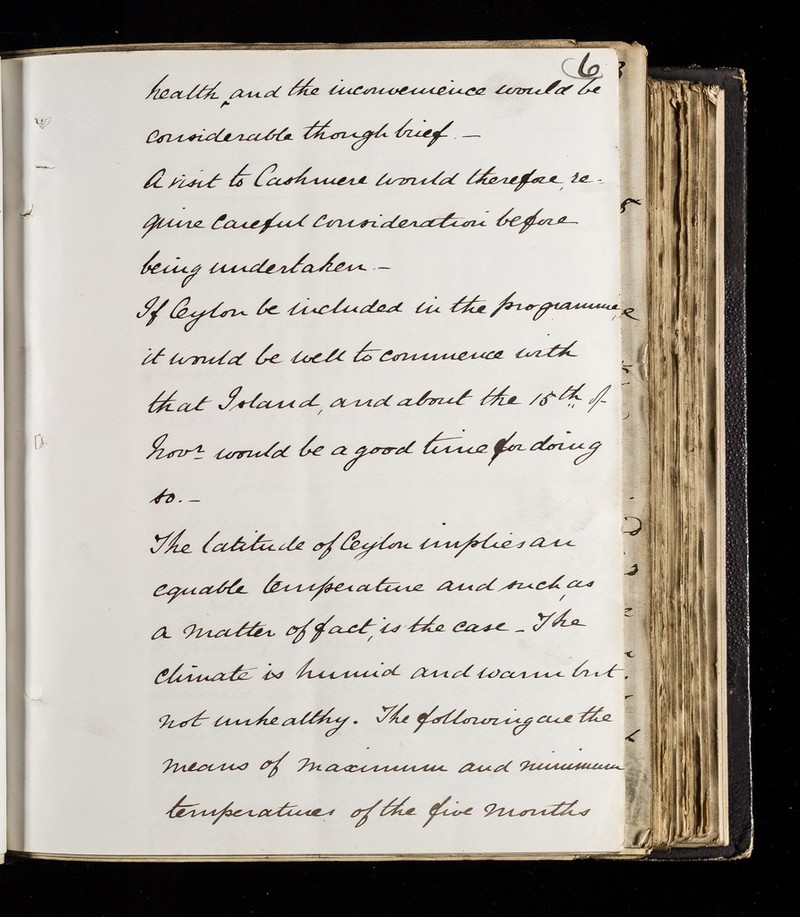 6
health, and the inconvenience would be
considerable though brief. —
A visit to Cashmere would therefore, re-
quire careful consideration before
being undertaken. —
If Ceylon be included in the programme,
it would be well to commence with
that Island, and about the 15th of
Novr would be a good time for doing
so. —
The latitude of Ceylon implies an
equable temperature and such, as
a matter of fact, is the case — The
climate is humid and warm but
not unhealthy. The following are the
means of maximum and minimum
temperatures of the five months